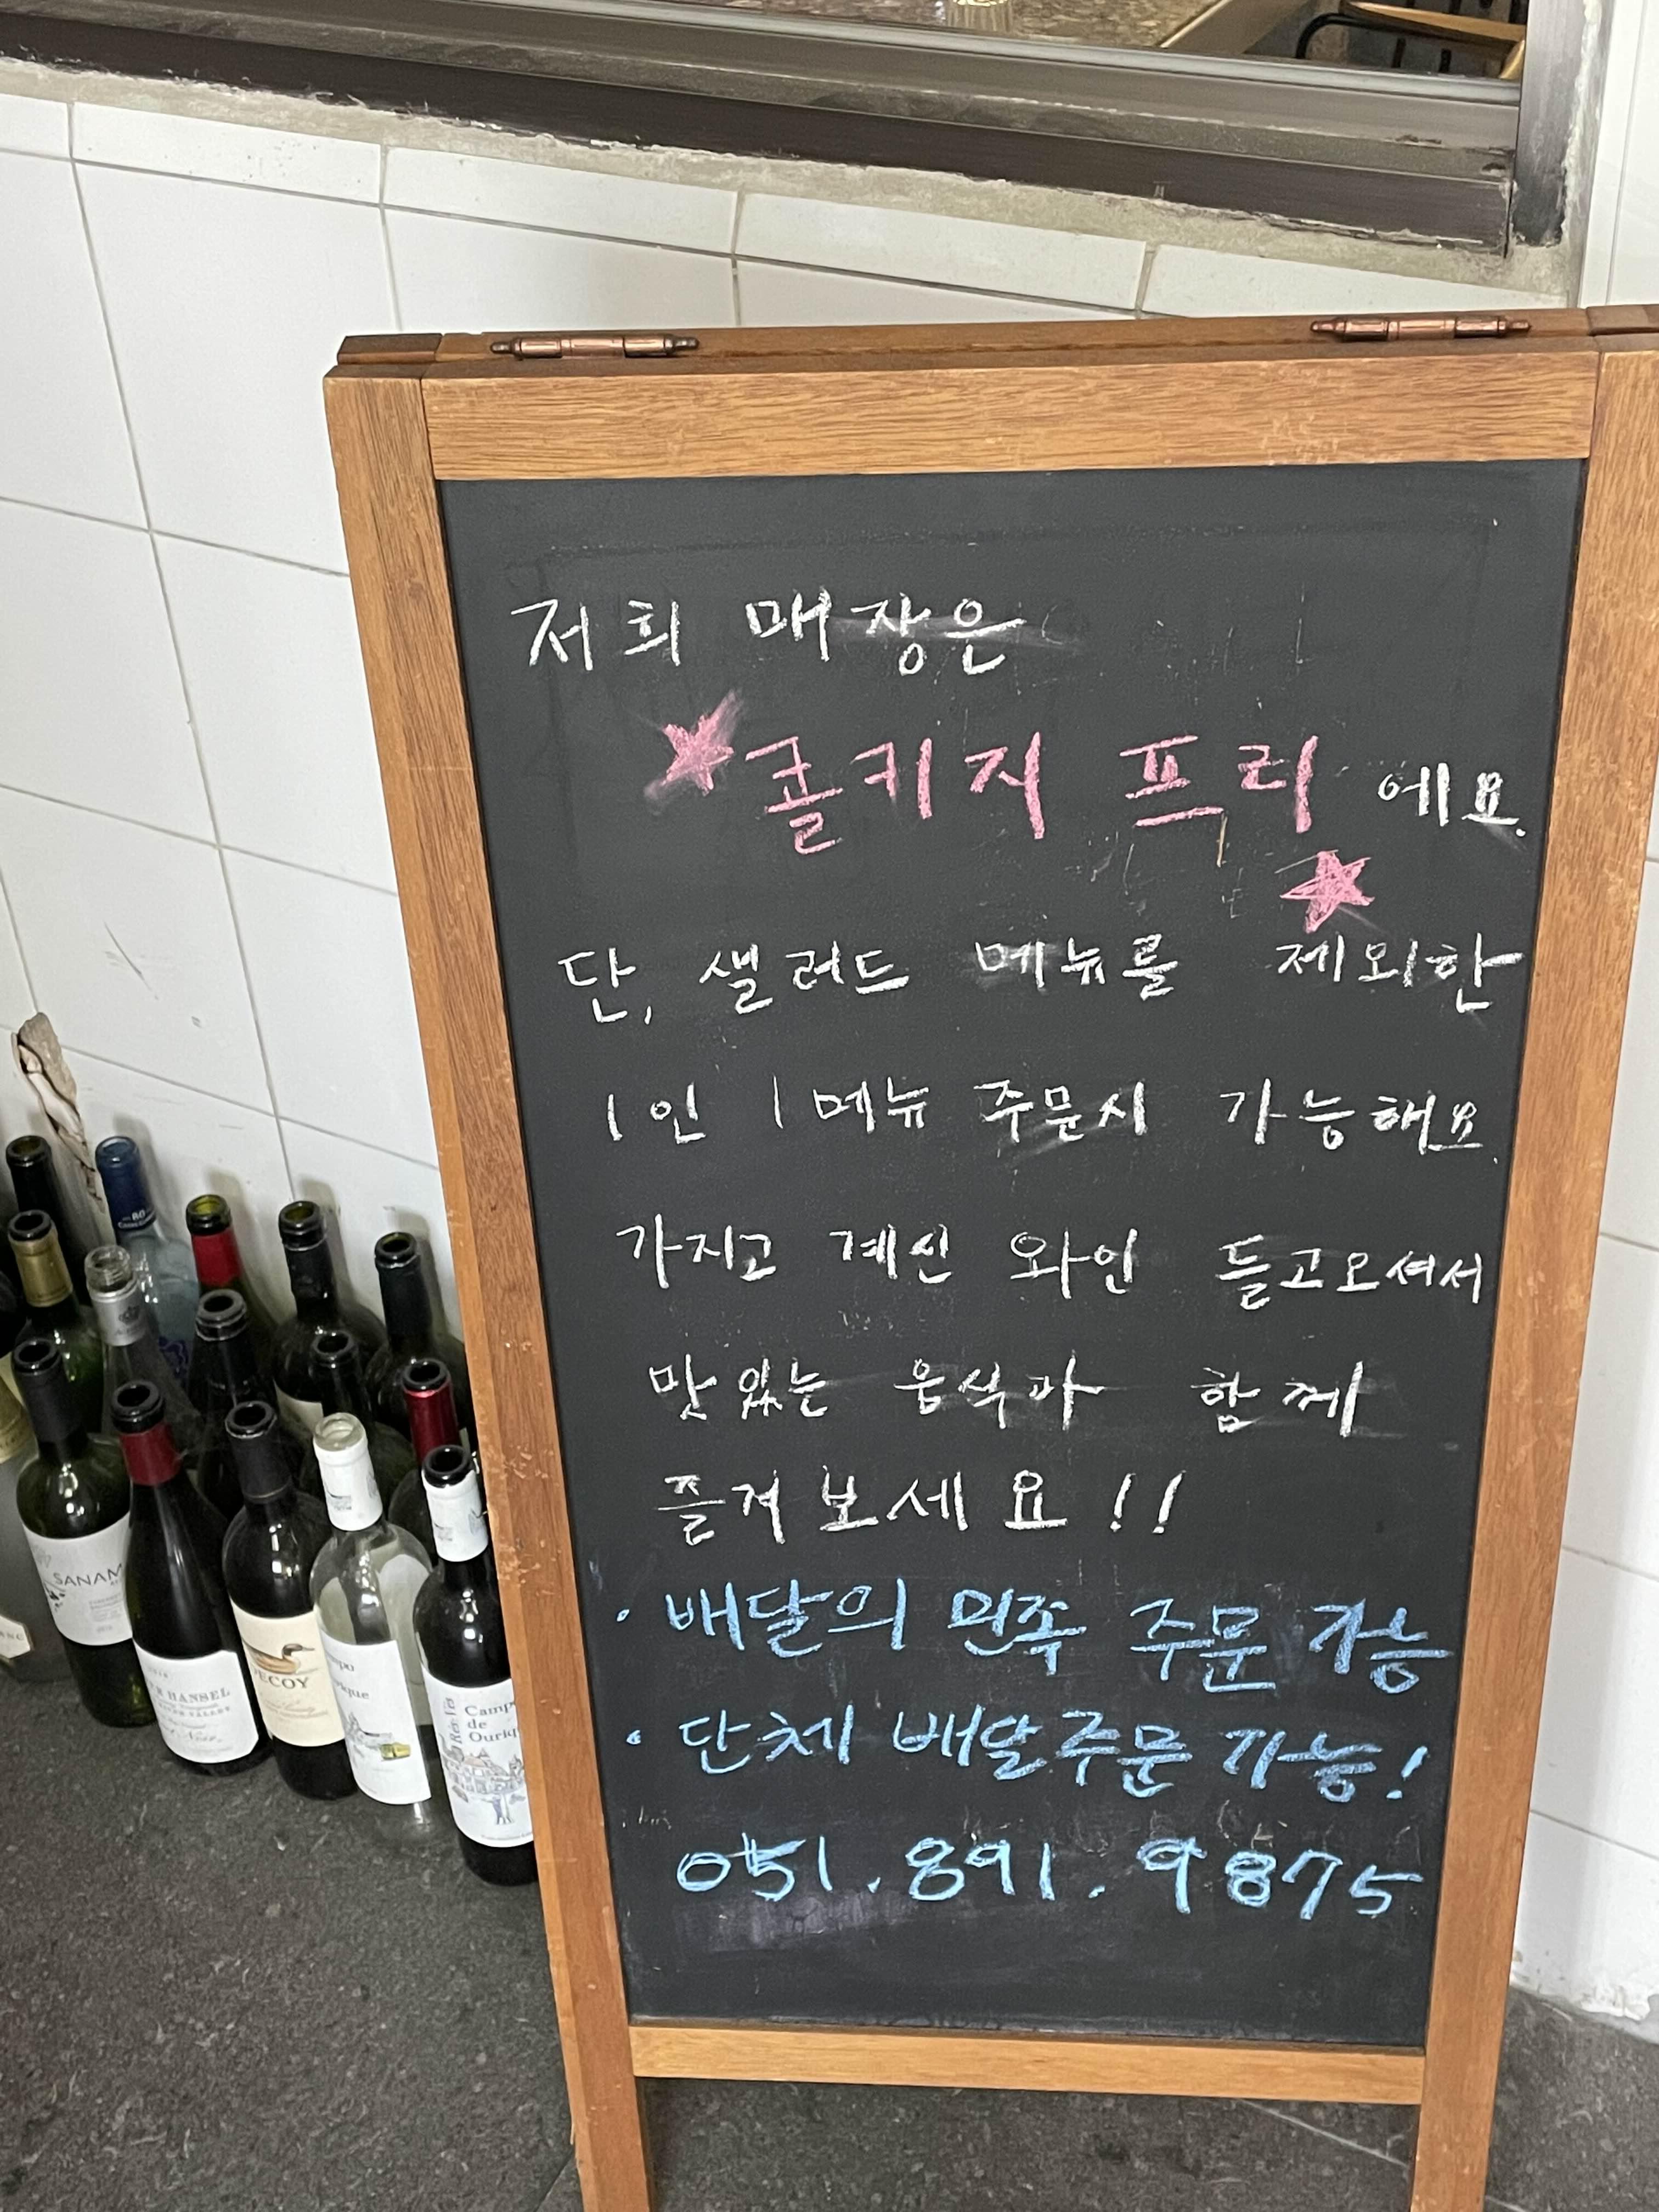 저희 매장은
콜키지 프리 에요.
단, 샐러드 메뉴를 제외한
1인 1메뉴 주문시 가능해요.
가지고 계신 와인 들고오셔서
맛있는 음식과 함께
즐겨보세요!!
· 배달의 민족 주문 가능
· 단체 배달주문 가능!
051.891.9875
SANAM
HANSEL
DECOY
Camp
de
Ouriq